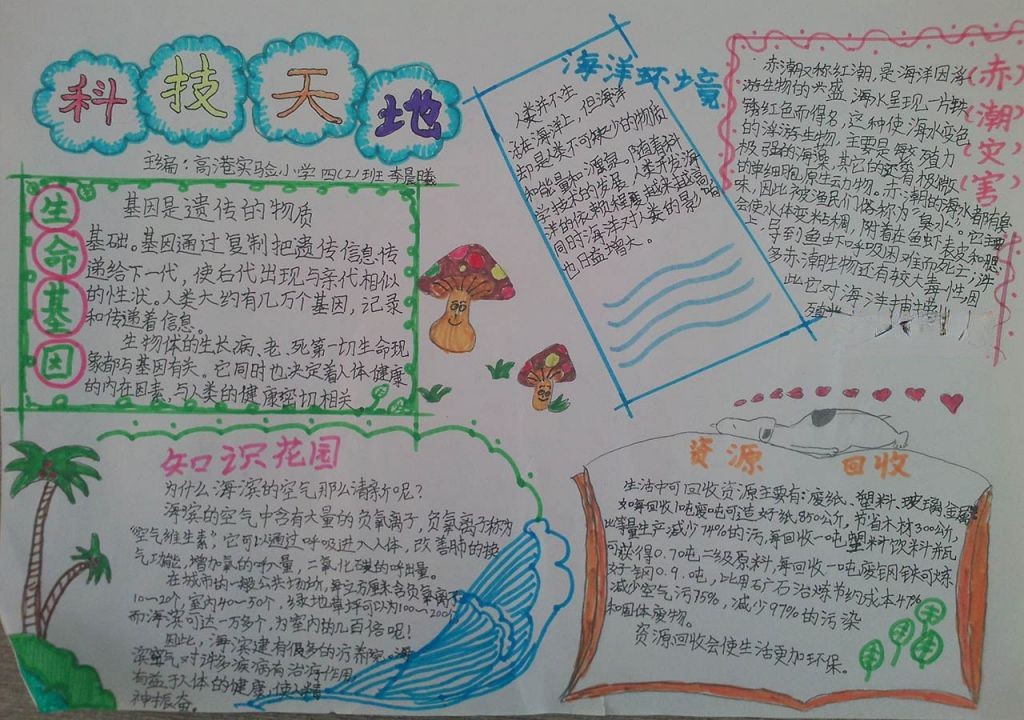 科技天地
主编：高港实验小学四(2)班 李晨曦
生命基因
基因是遗传的物质
基础。基因通过复制把遗传信息传
递给下一代，使后代出现与亲代相似
的性状。人类大约有几万个基因，记录
和传递着信息。
生物体的生长病、老、死第一切生命现
象都与基因有关。它同时也决定着人体健康
的内在因素，与人类的健康密切相关。
海洋环境
人类并不生
活在海洋上，但海洋
却是人类不可缺少的物质
和能量和源泉。随着科
学技术的发展，人类开发海
洋的依赖程度越来越高，
同时海洋对人类的影响
也日益增大。
(赤)(潮)(灾)(害)
赤潮又称红潮，是海洋因浮
游生物的兴盛，海水呈现一片铁
锈红色而得名，这种使海水变色
的浮游生物，主要是繁殖力
极强的海藻，其它的还有极微
的单细胞原生动物。赤潮的海水都有臭
味，因此被渔民们俗称为“臭水”。它
会使水体变粘稠，附着在鱼虾表皮和腮
上，导到鱼虫呼吸困难而死亡；许
多赤潮生物还有较大毒性，因
此它对海洋捕捞
殖
知识花园
为什么海滨的空气那么清新呢？
海滨的空气中含有大量的负氧离子，负氧离子称为
“空气维生素”，它可以通过呼吸进入人体，改善肺的换
气功能，增加氧的呼入量，二氧化碳的呼出量。
在城市的一般公共场坊，每立方厘米含负氧离子
10～20个，室内40～50个，绿地草坪可以为100～200个
而海滨可达一万多个，为室内的几百倍呢！
因此，海滨建有很多的疗养院。海
滨空气对许多疾病有治疗作用，
有益于人体的健康，使人精
神振奋。
资源回收
生活中可回收资源主要有：废纸、塑料、玻璃、金属
如每回收1吨废吨可造好纸850公斤，节省木材300公斤，
比等量生产减少74%的污，每回收一吨塑料饮料瓶
可获得0.70吨二级原料，每回收一吨废钢铁可炼
好钢0.9.吨，比用石广石冶炼节约成本47%
减少空气污75%，减少97%的污染
和固体废物。
资源回收会使生活更加环保。